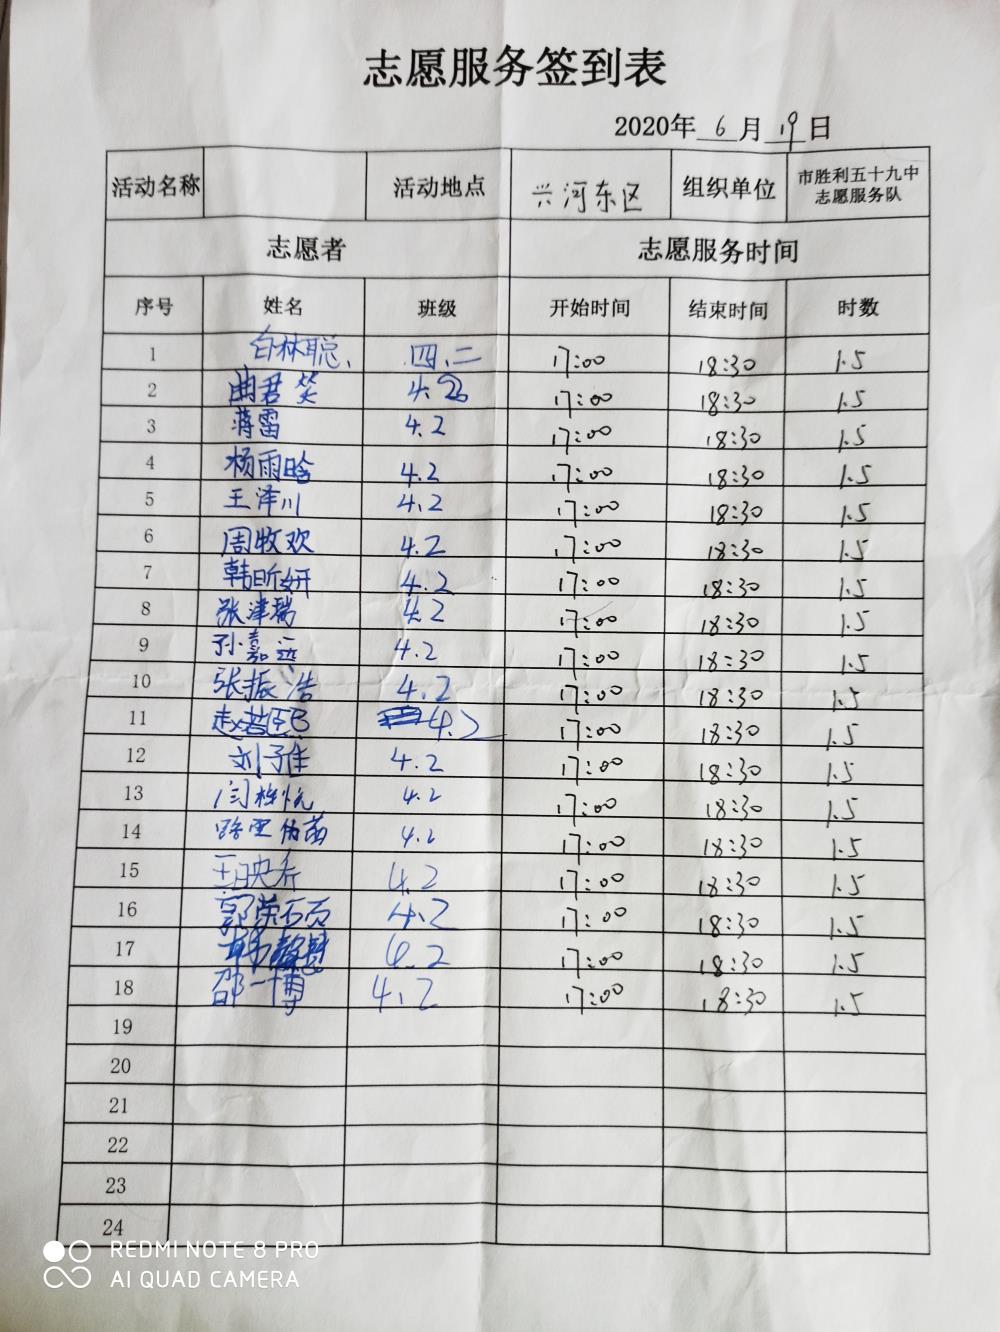 志愿服务签到表
2020年 6 月 19 日
活动名称 活动地点 兴河东区 组织单位 市胜利五十九中
志愿服务队
志愿者 志愿服务时间
序号 姓名 班级 开始时间 结束时间 时数
1 白林聪、 四、二 17:00 18:30 1.5
2 曲君 4.2 17:00 18:30 1.5
3 蒋雷 4.2 17:00 18:30 1.5
4 杨雨晗 4.2 17:00 18:30 1.5
5 王泽川 4.2 17:00 18:30 1.5
6 周牧欢 4.2 17:00 18:30 1.5
7 韩昕妍 4.2 17:00 18:30 1.5
8 张津瑞 4.2 17:00 18:30 1.5
9 孙嘉远 4.2 17:00 18:30 1.5
10 张振浩 4.2 17:00 18:30 1.5
11 赵若熙 4.2 17:00 18:30 1.5
12 刘子佳 4.2 17:00 18:30 1.5
13 闫 4.2 17:00 18:30 1.5
14 4.2 17:00 18:30 1.5
15 王映乔 4.2 17:00 18:30 1.5
16 郭荣硕 4.2 17:00 18:30 1.5
17 4.2 17:00 18:30 1.5
18 邵一博 4.2 17:00 18:30 1.5
19
20
21
22
23
24
REDMI NOTE 8 PRO
AI QUAD CAMERA